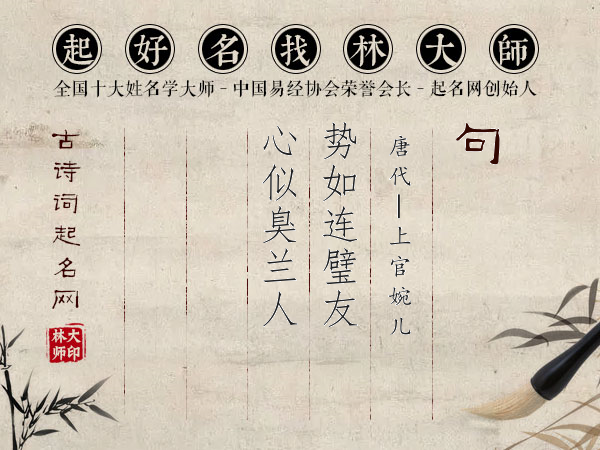 起好名找林大師
全国十大姓名学大师 - 中国易经协会荣誉会长 - 起名网创始人
句
唐代—上官婉儿
势如连璧友
心似臭兰人
古诗词起名网
大印
林师